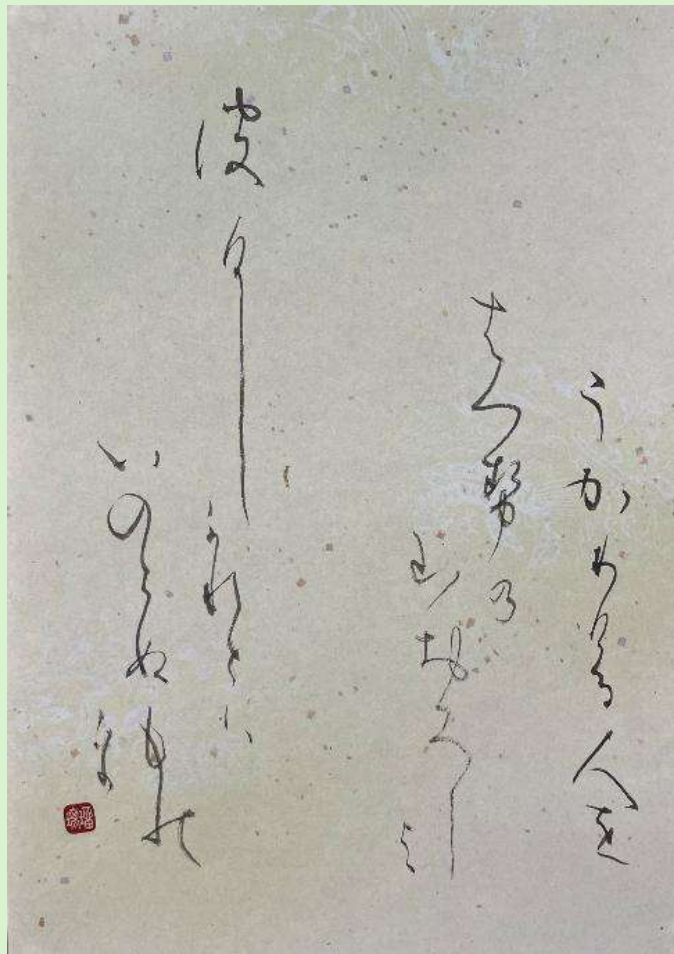 うかりける人を
はつ勢乃
山おろし
よ
波げし
かれとハ
いのらぬもの
を